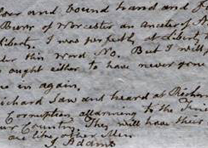 and bound hand and
Burr of Worcester an Ancestor of
liberty. I was perfectly at Liberty
under this word No. But I will
ought either to have never gone
in again.
Richard Saw and heard at Richmond
Corruption alarming to the
our Country. They will have their
J. Adams